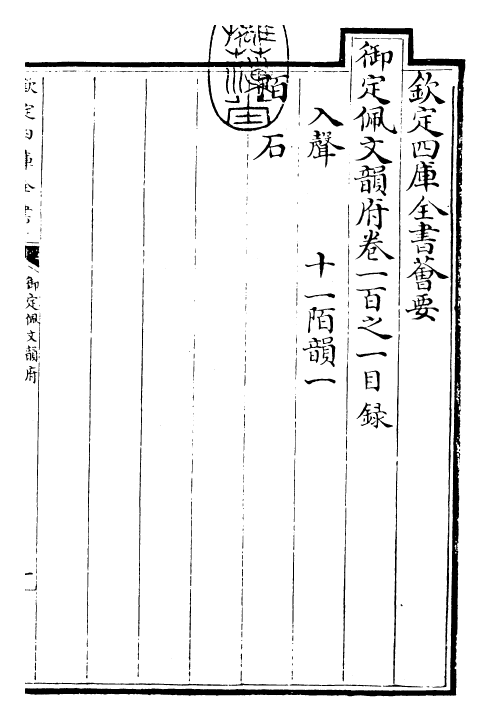 欽定四庫全書薈要
御定佩文韻府卷一百之一目録
入聲　十一陌韻一
陌　石
欽定四庫全書
御定佩文韻府
一